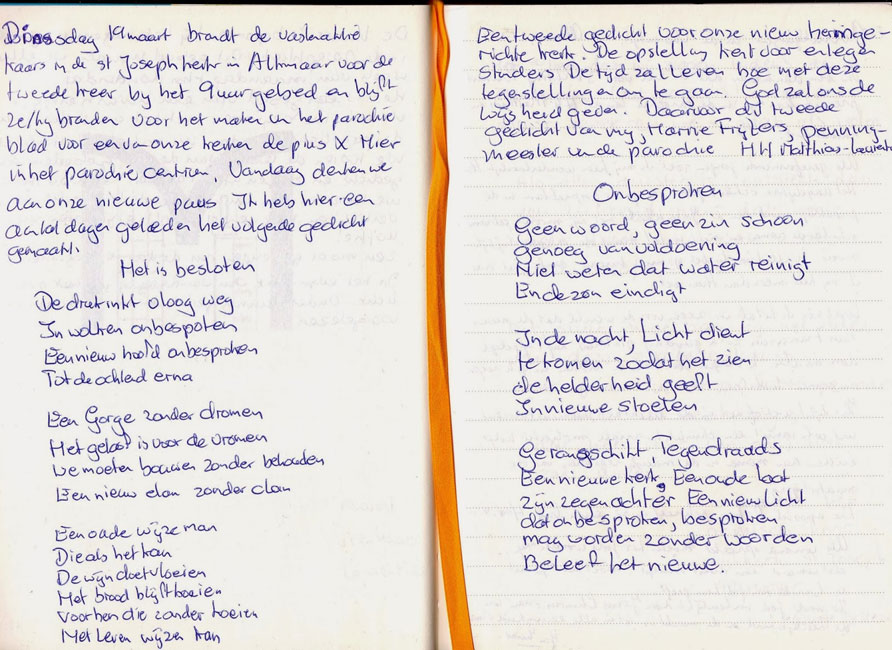 Dinsdag 19 maart brandt de vastenaktie
kaars in de st Josephkerk in Alkmaar voor de
tweede keer bij het 9 uur gebed en blijft
ze/hij branden voor het maken in het parochie
blad voor een van onze kerken de pius X Hier
in het parochie centrum. Vandaag denken we
aan onze nieuwe paus Ik heb hier een
aantal dagen geleden het volgende gedicht
gemaakt.
Het is besloten
De drukinkt oloog weg
In wolken onbesproken
Een nieuw hoofd onbesproken
Tot de ochtend erna
Een Gorge zonder dromen
Het geloof is voor de vromen
We moeten bouwen zonder behouden
Een nieuw elan zonder clan
Een oude wijze man
Die als het kan
De wijn doet vloeien
Het brood blijft boeien
Voor hen die zonder boeien
Met Leven wijzer kan
Een tweede gedicht voor onze nieuw heringe-
richte kerk. De opstelling kent voor en tegen
standers De tijd zal leren hoe met deze
tegenstellingen om te gaan. God zal ons de
wijsheid geven. Daarvoor dit tweede
gedicht van mij, Harrie Frijters, penning-
meester van de parochie HH Matthias-Laurentius
Onbesproken
Geen woord, geen zin schoon
genoeg van voldoening
Niet weten dat water reinigt
En de zon eindigt
In de nacht, Licht dient
te komen zodat het zien
de helderheid geeft
In nieuwe stoeten
Gerangschikt, Tegendraads
Een nieuwe kerk, Een oude laat
Zijn zegen achter Een nieuw Licht
dat onbesproken, besproken
mag worden zonder woorden
Beleef het nieuwe.